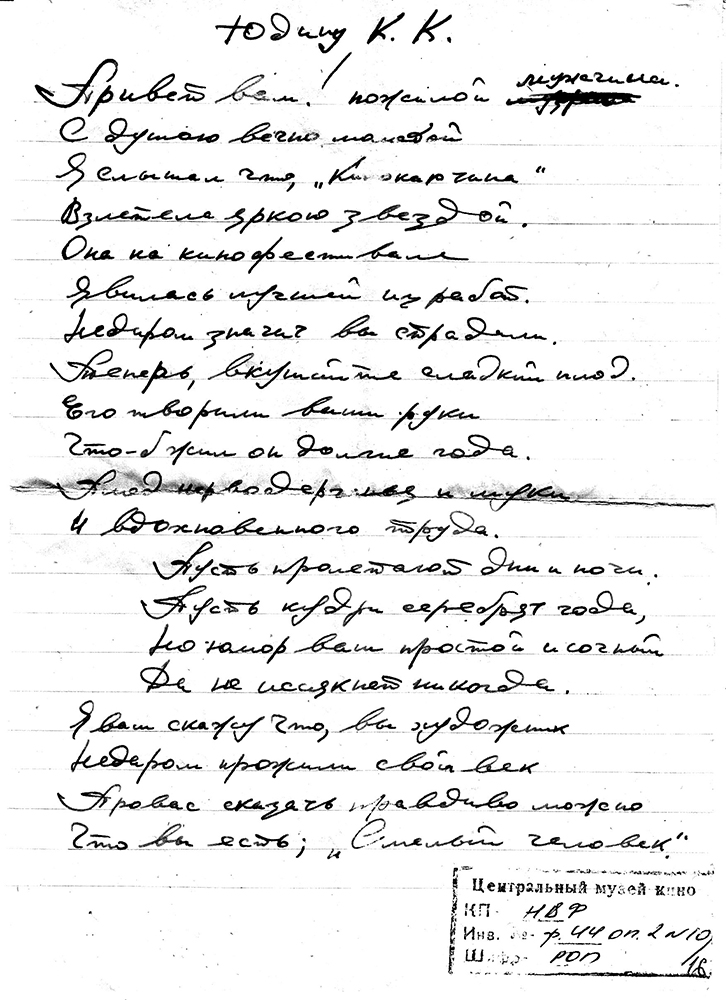 Юдину К. К.
Привет вам! пожилой мужчина.
С душою вечно молодой
Я слышал что, „Кинокартина"
Взлетела яркою звездой.
Она на кинофестивале
Явилась лучшей из работ.
Недаром значит вы страдали.
Теперь, вкушайте сладкий плод.
Его творили ваши руки
Что-б жил он долгие года.
Плод и муки
И вдохновенного труда.
Пусть пролетают дни и ночи.
Пусть кудри серебрят года,
Но юмор ваш простой и сочный
Да не иссякнет никогда.
Я вам скажу что, вы художник
Недаром прожили свой век
Про вас сказать правдиво можно
Что вы есть; „Смелый человек."
Центральный музей кино
КП- НВФ
Инв. №- ф. 44 оп. 2 N 10/16
Шифр- РОП